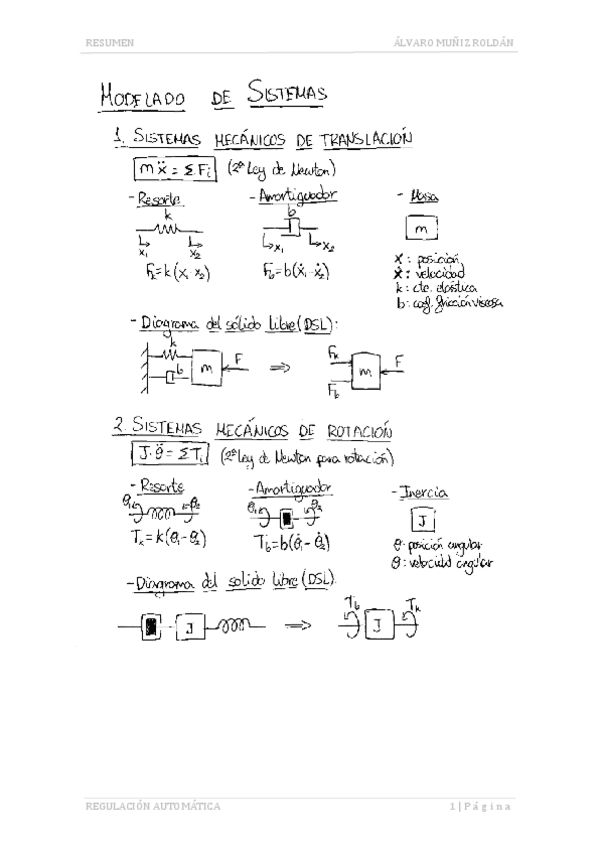 RESUMEN ÁLVARO MUÑIZ ROLDÁN
MODELADO DE SISTEMAS
1. SISTEMAS MECÁNICOS DE TRANSLACIÓN
mẍ = ΣFi (2ª Ley de Newton)
- Resorte - Amortiguador - Masa
k b
m
x₁ x₂ x₁ x₂
Fk=k(x₁-x₂) Fb=b(ẋ₁-ẋ₂)
x: posición
ẋ: velocidad
k: cte. elástica
b: coef. fricción viscosa
- Diagrama del sólido libre (DSL):
k
b m F ⇒ Fk m F
Fb
2. SISTEMAS MECÁNICOS DE ROTACIÓN
J·θ̈ = ΣTi (2ª Ley de Newton para rotación)
- Resorte - Amortiguador - Inercia
θ₁ θ₂ θ₁ θ₂ J
Tk=k(θ₁-θ₂) Tb=b(θ̇₁-θ̇₂)
θ: posición angular
θ̇: velocidad angular
- Diagrama del solido libre (DSL)
J ⇒ Tb J Tk
REGULACIÓN AUTOMÁTICA 1 | Página